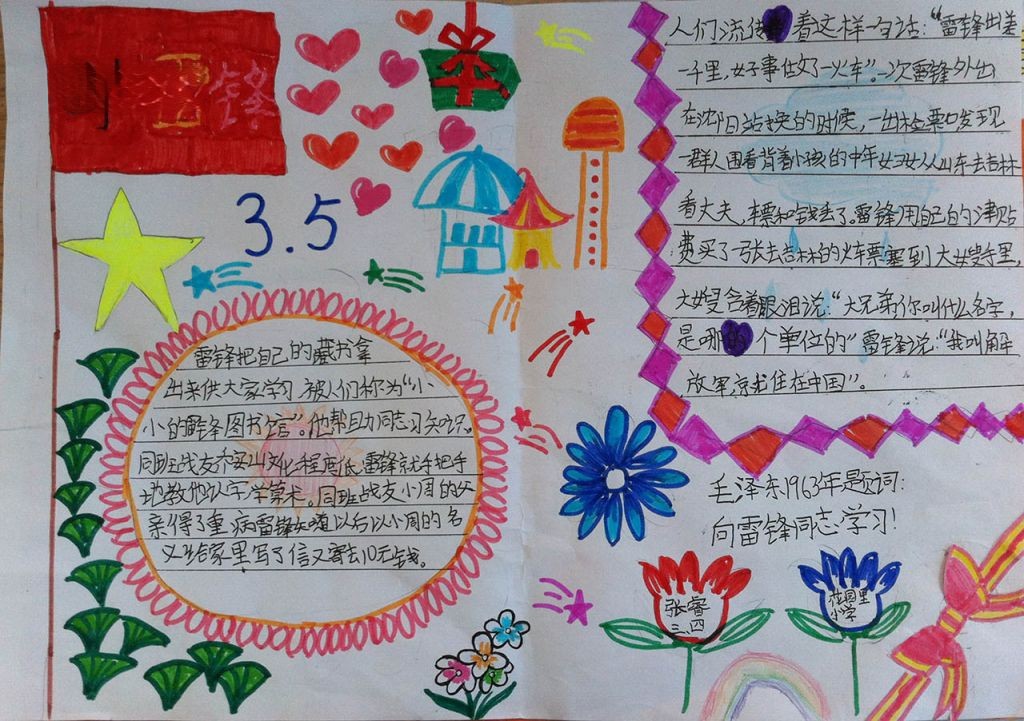 雷锋
3.5
雷锋把自己的藏书拿
出来供大家学习,被人们称为“小
小的雷锋图书馆”。他帮助同志习知识。
同班战友乔安山文化程度低,雷锋就手把手
地教他认字,学算术。同班战友小周的父
亲得了重病雷锋知道以后以小周的名
义给家里写了信又寄去10元钱。
人们流传着这样一句话:“雷锋出差
一千里,好事做了一火车”。次雷锋外出
在沈阳站换的时候,一出检票口发现
一群人围看背着小孩的中年妇女从山东去吉林
看丈夫,车票和钱丢了。雷锋用自己的津贴
费买了一张去吉林的火车票塞到大嫂手里,
大嫂含着眼泪说:“大兄弟你叫什么名字,
是哪个单位的”雷锋说:“我叫解
放军,就住在中国”。
毛泽东1963年题词:
向雷锋同志学习!
张睿
三、四
花园里
小学